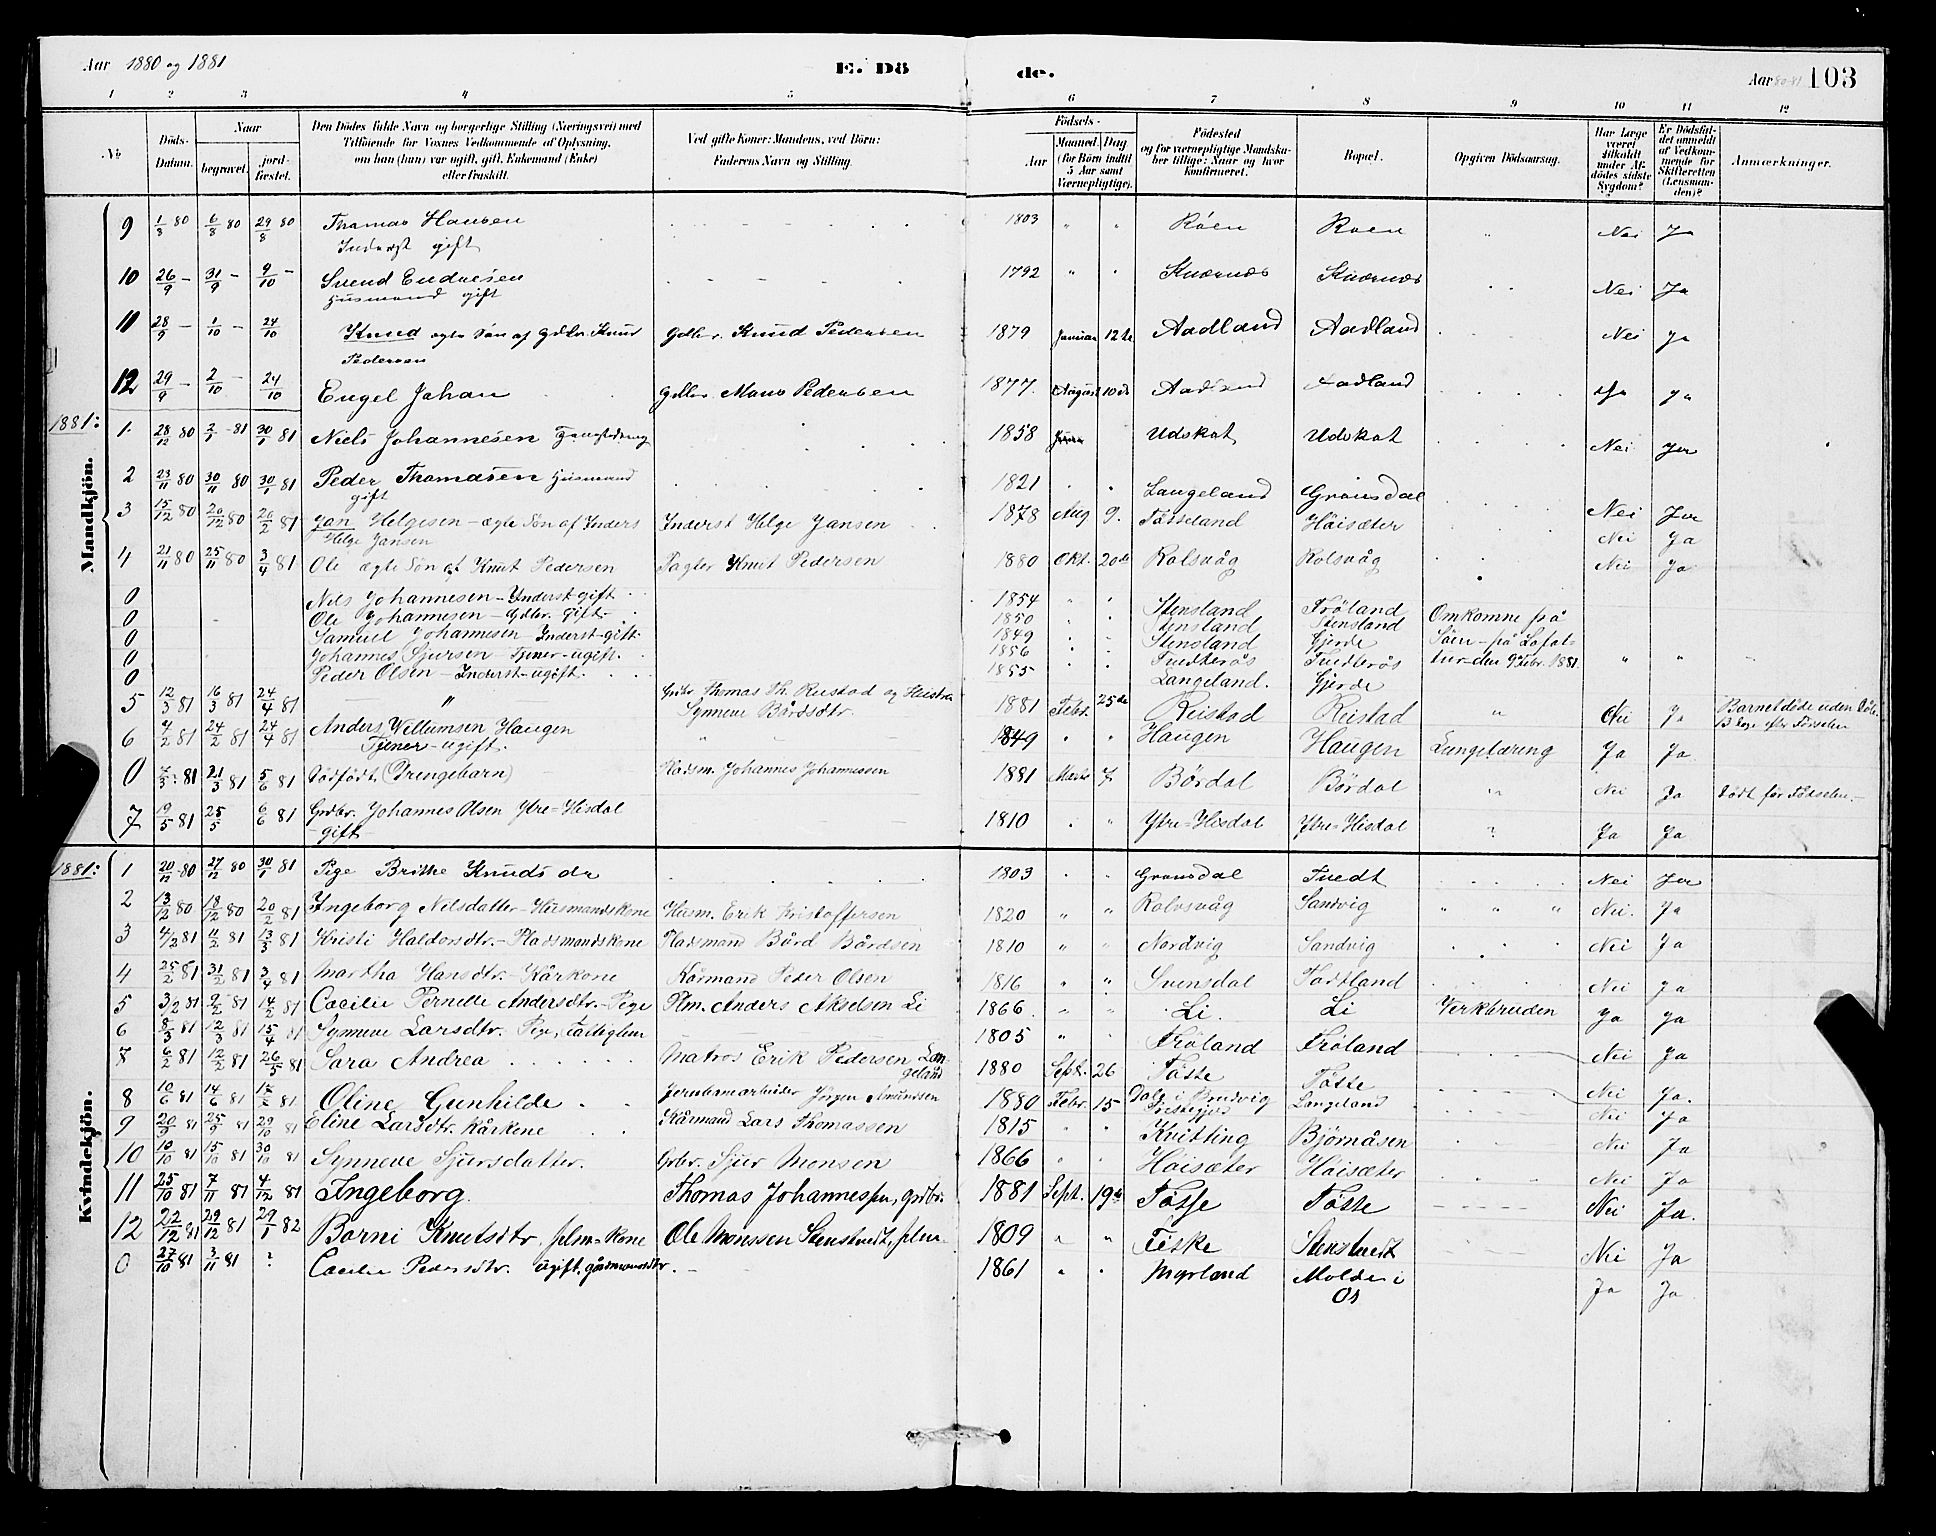 Aar 1880 og 1881 E. Dö de. Aar 80-81 103
1 2 3 4 5 6 7 8 9 10 11 12
No Döds-Datum. Naar begravet. jord-fæstet. Den Dödes fulde Navn og borgerlige Stilling (Næringsvei) med Tilföiende for Voxnes Vedkommende af Oplysning, om han (hun) var ugift, gift, Enkemand (Enke) eller fraskilt. Ved gifte Koner: Mandens, ved Börn: Faderens Navn og Stilling. Födsels- Aar Maaned Dag (for Börn indtil 5 Aar samt Værnepligtige). Födested og for værnepligtige Mandska-ber tillige: Naar og hvor Konfirmeret. Bopæl. Opgiven Dödsaarsag. Har Læge været tilkaldt under Af-dödes sidste Sygdom? Er Dödsfal-det anmeldt af Vedkom-mende for Skifteretten (Lensman-den)? Anmærkninger.
Mandkjön.
9 1/8 80 6/8 80 29/8 80 Thomas Hansen 1803 " " Röen Roen " Nei Ja
Inderst gift
10 26/9 - 31/9 - 9/10 - Svend Endresen 1792 " " Knærnæs Knærnæs Nei Ja
Husmand gift
11 28/9 - 1/10 - 24/10 Knud ægte Søn af Gdbr. Knud Gdbr. Knud Pedersen 1879 Januar 12te Aadland Aadland Nei Ja
Pedersen
12 29/9 - 2/10 - 24/10 Engel Johan Gdbr. Mons Pedersen 1877. August 10de Aadland Aadland Ja Ja
1881:
1. 28/12 80 2/1 - 81 30/1 81 Niels Johannesen 1858 Udskot Udskot Nei Ja
2 23/11 80 30/11 80 30/1 81 Peder Thomasen Husmand 1821 Langeland Grönsdal Nei Ja
gift
3 15/12 80 20/12 80 20/2 81 Jan Helgesen - ægte Søn af Inders Inderst Helge Jansen 1878 Aug 9. Tösseland Höisæter Nei Ja
Helge Jansen
4 21/11 80 25/11 80 3/4 81 Ole ægte Søn af Knut Pedersen Knut Pedersen 1880 Okt. 20de Rolsvåg Rolsvåg Nei Ja
0 Nils Johannesen - Inderst-gift 1854 Stensland Fröland Omkomne på
0 Ole Johannesen - Gdbr. gift 1850 Stensland Stensland Söen - på Lofot-
0 Samuel Johannesen Inderst-gift 1849 Stensland Gjerde tur den 9de Febr. 1881.
0 Johannes Sjursen - Tjener-ugift 1856 Tuedterås Tuedterås " "
0 Peder Olsen - Inderst-ugift. 1855 Langeland. Gjerde
5 12/3 81 16/3 81 24/4 81 " Grbr Thomas Th. Reistad og Hustru 1881 Febr. 25de Reistad Reistad " Nei Ja Barnet döde uden Dåb
Synneve Bårdsdtr.
6 7/2 81 24/2 81 24/4 81 Anders Willumsen Haugen 1849 " " Haugen Haugen Lungetæring Ja Ja
Tjener - ugift.
0 7/3 81 21/3 81 5/6 81 Dödfödt (Drengebarn) Pladsm. Johannes Johannessen 1881 Marts 7 Bördal Bördal " Nei Ja Dödt för Födselen.
7 19/5 81 25/5 6/6 81 Grdbr. Johannes Olsen Ytre-Hisdal 1810 Ytre-Hisdal Ytre-Hisdal ? Ja Ja
gift
Kvindekjön.
1881:
1 20/12 80 27/12 80 30/1 81 Pige Brithe Knudsdr 1803 Grønsdal Tuedt Nei Ja
2 13/12 80 18/12 80 20/2 81 Ingeborg Nilsdatter - Husmandskone Husm. Erik Kristoffersen 1820 " " Rolvsvåg Sandvig " " " Nei. Ja
3 4/2 81 11/2 81 13/3 81 Kristi Haldorsdtr. - Pladsmandskone Pladsmand Bård Bårdsen 1810 " " Nordvig Sandvig Nei Ja
4 25/2 81 31/2 81 3/4 81 Martha Hansdtr. - Kårkone Kårmand Peter Olsen 1816 " " Svensdal Todtland Nei Ja
5 3/2 81 9/2 81 14/2 81 Cæcilie Pernille Andersdtr. - Pige Plm. Anders Akselsen Li 1866 " " Li. Li Verkbruden Ja Ja
6 8/3 81 12/3 81 15/4 81 Synneve Larsdtr. Pige, Fattiglem 1805 " Fröland Fröland Nei Ja
7 6/2 81 12/2 81 26/5 81 Sara Andrea Matros Erik Pedersen Lan- 1880 Sept. 26 Tösse Tösse Nei Ja.
geland
8 10/6 81 14/6 81 81 Oline Gunhilde Jernbanearbeider Jörgen Amundsen 1880 Febr. 15 Dale i Bruvig Langeland Nei Ja
Prestegjeld
9 20/9 81 25/9 81 29/10 81 Eline Larsdtr. Kårkone Kårmand Lars Thomassen 1815 " " Kvitting Björnåsen Nei Ja
10 10/10 81 15/10 81 30/10 81 Synneve Sjursdatter. Grbr. Sjur Monsen 1866 " " Höisæter Höisæter Nei Ja
11 25/10 81 7/11 81 4/12 81 Ingeborg. Thomas Johannessen, grdbr. 1881 Sept. 19de Tösse Tösse Nei Ja.
12 22/12 81 29/12 81 29/1 82 Borni Knutsdtr, plm-kone Ole Monssen Stenstvedt, plm. 1809 " " Fiske Stenstvedt Nei Ja
0 27/10 81 3/11 81 ? Cæcilie Pedersdtr. ugift, gårdmandsdtr. 1861 " " Myrland Molde i Ja Ja
Os